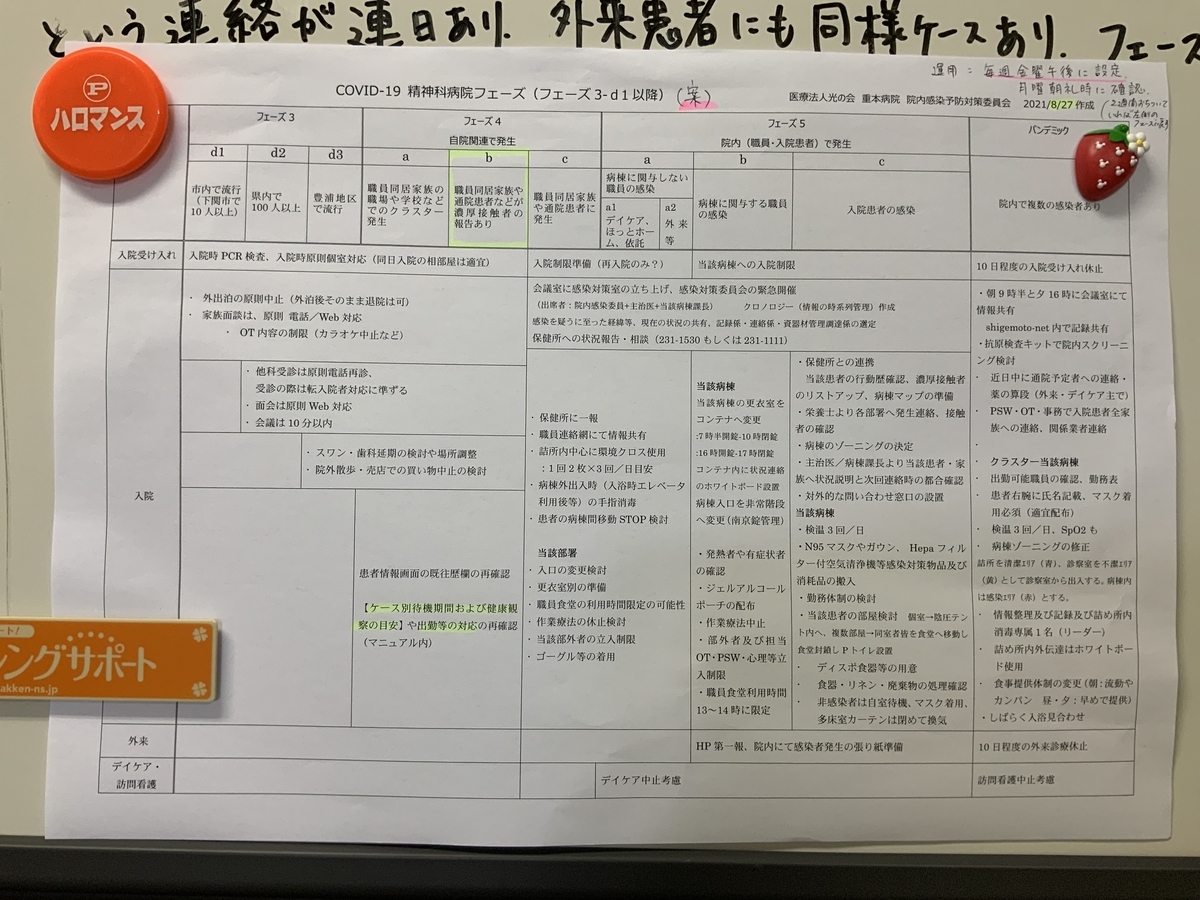 という連絡が連日あり. 外来患者にも同様ケースあり. フェーズ
運用：毎週金曜午後に設定.
月曜朝礼時に確認.
COVID-19 精神科病院フェーズ（フェーズ 3-d1 以降）(案)
医療法人光の会 重本病院 院内感染予防対策委員会 2021/8/27 作成
P
ハロマンス
フェーズ 3
フェーズ 4
自院関連で発生
フェーズ 5
院内（職員・入院患者）で発生
パンデミック
d1
d2
d3
a
b
c
a
b
c
市内で流行
（下関市で
10 人以上）
県内で
100 人以上
豊浦地区
で流行
職員同居家族の
職場や学校など
でのクラスター
発生
職員同居家族や
通院患者などが
濃厚接触者の
報告あり
職員同居家族
や通院患者に
発生
病棟に関与しない
職員の感染
a1
デイケア、
ほっとホー
ム、依託
a2
外来
等
病棟に関与する職員
の感染
入院患者の感染
院内で複数の感染者あり
入院受け入れ
入院時 PCR 検査、入院時原則個室対応（同日入院の相部屋は適宜）
入院制限準備（再入院のみ？）
当該病棟への入院制限
10 日程度の入院受け入れ休止
入院
・ 外出泊の原則中止（外泊後そのまま退院は可）
・ 家族面談は、原則 電話／Web 対応
・ OT 内容の制限（カラオケ中止など）
・ 他科受診は原則電話再診、
受診の際は転入院者対応に準ずる
・ 面会は原則 Web 対応
・ 会議は 10 分以内
・ スワン・歯科延期の検討や場所調整
・ 院外散歩・売店での買い物中止の検討
患者情報画面の既往歴欄の再確認
【ケース別待機期間および健康観
察の目安】や出勤等の対応の再確認
（マニュアル内）
会議室に感染対策室の立ち上げ、感染対策委員会の緊急開催
（出席者：院内感染委員+主治医+当該病棟課長） クロノロジー（情報の時系列管理）作成
感染を疑うに至った経緯等、現在の状況の共有、記録係・連絡係・資器材管理調達係の選定
保健所への状況報告・相談（231-1530 もしくは 231-1111）
・ 保健所に一報
・ 職員連絡網にて情報共有
・ 詰所内中心に環境クロス使用
：1 回 2 枚×3 回／日目安
・ 病棟外出入時（入浴時エレベータ
利用後等）の手指消毒
・ 患者の病棟間移動 STOP 検討
当該部署
・ 入口の変更検討
・ 更衣室別の準備
・ 職員食堂の利用時間限定の可能性
・ 作業療法の休止検討
・ 当該部外者の立入制限
・ ゴーグル等の着用
当該病棟
当該病棟の更衣室を
コンテナへ変更
:7 時半開錠-10 時閉錠
:16 時開錠-17 時閉錠
コンテナ内に状況連絡
のホワイトボード設置
病棟入口を非常階段
へ変更（南京錠管理）
・ 発熱者や有症状者
の確認
・ ジェルアルコール
ポーチの配布
・ 作業療法中止
・ 部外者及び担当
OT・PSW・心理等立
入制限
・ 職員食堂利用時間
13～14 時に限定
・保健所との連携
当該患者の行動歴確認、濃厚接触者
のリストアップ、病棟マップの準備
・栄養士より各部署へ発生連絡、接触
者の確認
・病棟のゾーニングの決定
・主治医／病棟課長より当該患者・家
族へ状況説明と次回連絡時の都合確認
・対外的な問い合わせ窓口の設置
当該病棟
・検温 3 回／日
・N95 マスクやガウン、 Hepa フィル
ター付空気清浄機等感染対策物品及び
消耗品の搬入
・勤務体制の検討
・当該患者の部屋検討 個室→陰圧テン
ト内へ、複数部屋→同室者皆を食堂へ移動し
食堂封鎖し P トイレ設置
・ ディスポ食器等の用意
・ 食器・リネン・廃棄物の処理確認
・ 非感染者は自室待機、マスク着用、
多床室カーテンは閉めて換気
・朝 9 時半と夕 16 時に会議室にて
情報共有
shigemoto-net 内で記録共有
・抗原検査キットで院内スクリーニ
ング検討
・ 近日中に通院予定者への連絡・
薬の算段（外来・デイケア主で）
・ PSW・OT・事務で入院患者全家
族への連絡、関係業者連絡
・
・ クラスター当該病棟
・ 出勤可能職員の確認、勤務表
・ 患者右腕に氏名記載、マスク着
用必須（適宜配布）
・ 検温 3 回／日、SpO2 も
・ 病棟ゾーニングの修正
詰所を清潔ｴﾘｱ（青）、診察室を不潔ｴﾘｱ
（黄）として診察室から出入する。病棟内
は感染ｴﾘｱ（赤）とする。
・ 情報整理及び記録及び詰め所内
消毒専属 1 名（リーダー）
・ 詰め所内外伝達はホワイトボー
ド使用
・ 食事提供体制の変更（朝：流動や
カンパン 昼・夕：早めで提供）
・しばらく入浴見合わせ
外来
HP 第一報、院内にて感染者発生の張り紙準備
10 日程度の外来診療休止
デイケア・
訪問看護
デイケア中止考慮
訪問看護中止考慮
ート!
ングサポート
akken-ns.jp